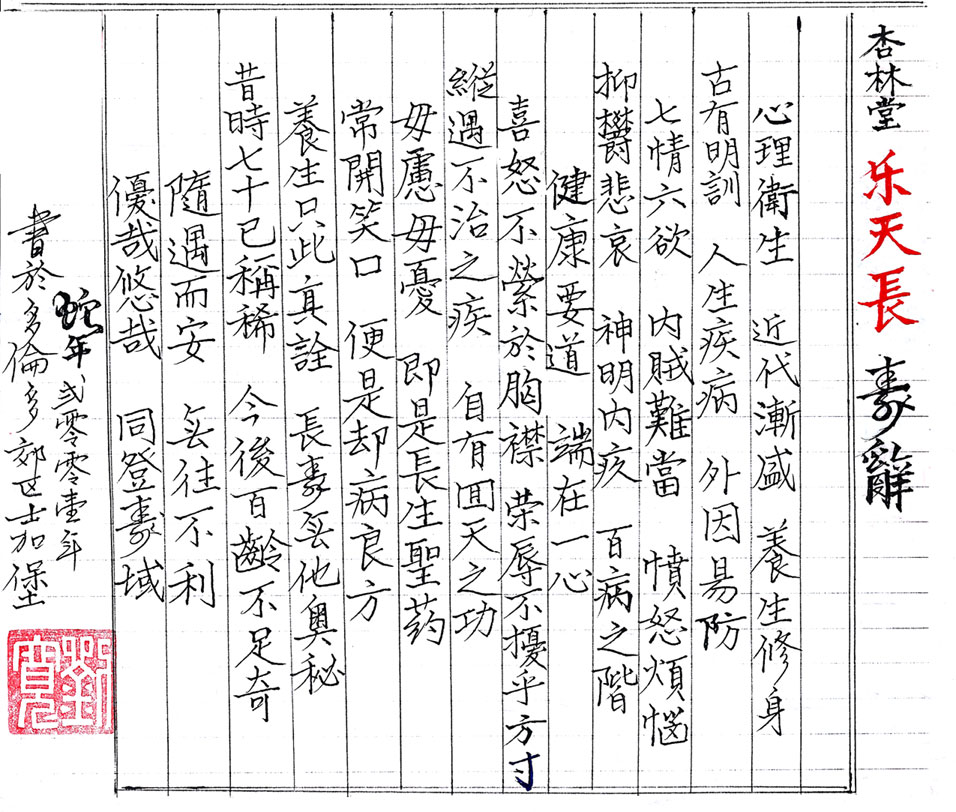 杏林堂 乐天長 壽辭
心理衛生 近代漸盛 養生修身
古有明訓 人生疾病 外因易防
七情六欲 内賊難當 憤怒煩惱
抑鬱悲哀 神明内疚 百病之階
健康要道 端在一心
喜怒不縈於胸襟 荣辱不擾乎方寸
縱遇不治之疾 自有囬天之功
毋慮毋憂 即是長生聖药
常開笑口 便是却病良方
養生只此真詮 長壽无他奥秘
昔時七十已稱稀 今後百齡不足奇
隨遇而安 无往不利
優哉悠哉 同登壽域
蛇年 弍零零壹年
書於多倫多 郊区士加堡
劉寬